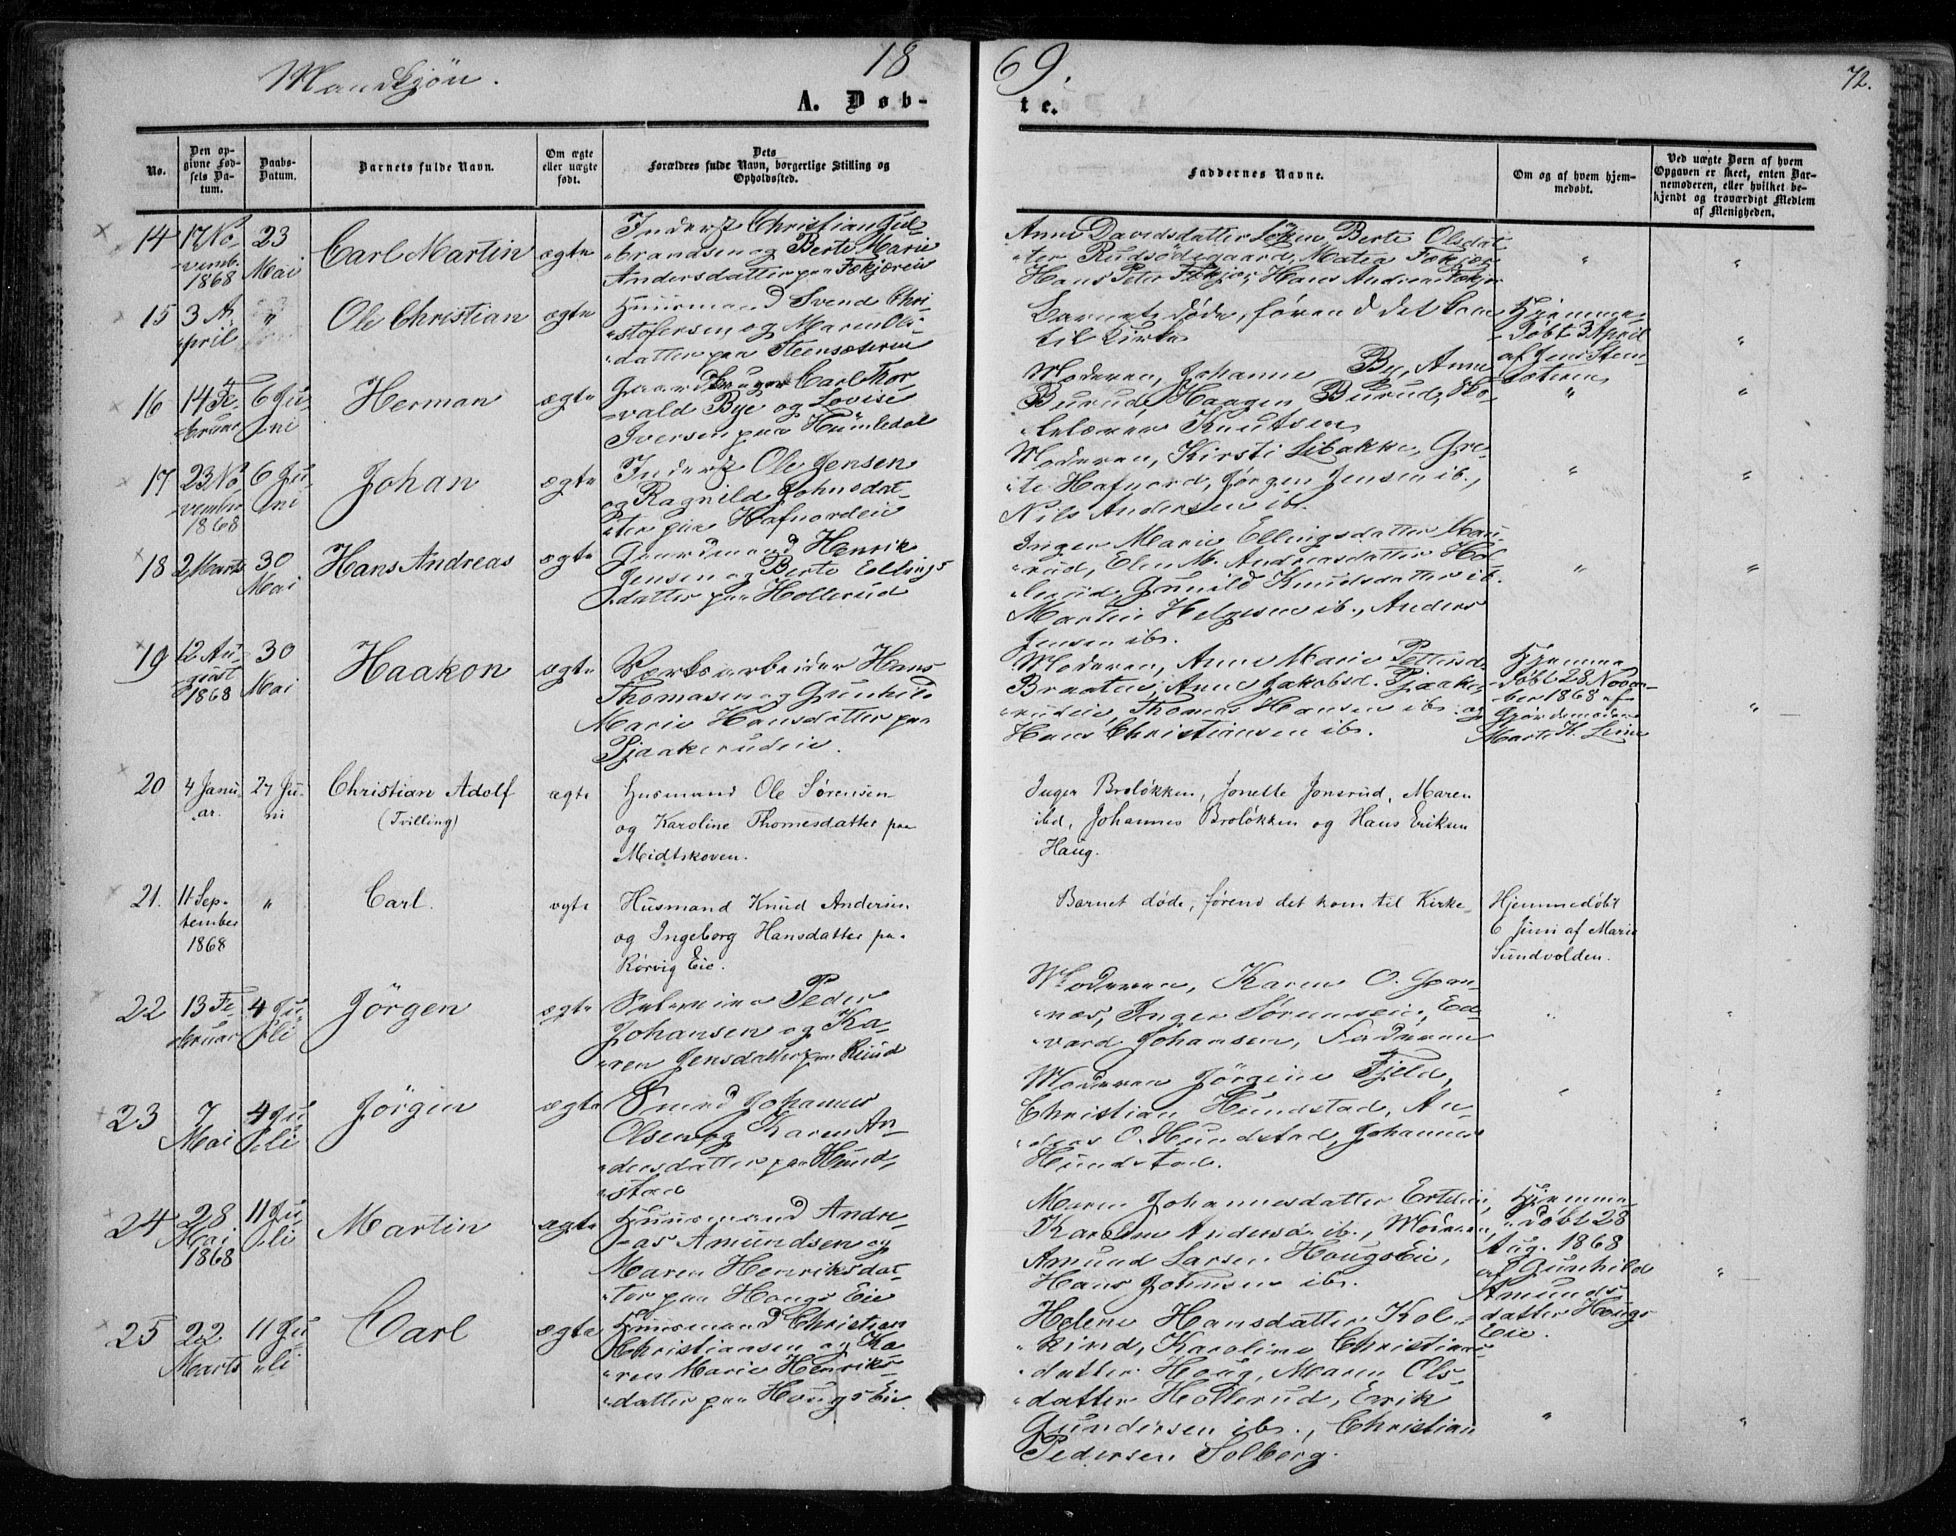 Mandkjøn.
18
69.
72.
A. Døb-
te.
No.
Den op-
givne Fød-
sels Da-
tum.
Daabs-
Datum.
Barnets fulde Navn.
Om ægte
eller uægte
født.
Dets
Forældres fulde Navn, borgerlige Stilling og
Opholdssted.
Faddernes Navne.
Om og af hvem hjem-
medøbt.
Ved uægte Born af hvem
Opgaven er skeet, enten Bar-
nemoderen, eller hvilket be-
kjendt og troværdigt Medlem
af Menigheden.
14
17 No-
vemb.
1868
23
Mai
Carl Martin
ægte
Inderst Christian Gul
brandsen og Berte Marie
Andersdatter paa
Anne Davidsdatter Berte Olsdat-
ter Rudsødegaard, Matea
Hans Peter Hans Andreas
"
"
15
3 A-
pril
"
Ole Christian
ægte
Huusmand Svend Chri-
stofersen og Maren Ols-
datter paa Steensæteren
Barnet døde, førend det kom
til Kirke
Hjemme-
døbt 3 April
af Jens Steen-
sæteren
"
16
14 Fe-
bruar
6 Ju-
ni
Herman
ægte
Gaardbruger Carl Thor
vald Bye og Lovise
Iversen paa Humledal
Moderen, Johanne By, Anne
Burud, Haagen Burud, Sko-
lelærer Knutsen
"
"
17
23 No-
vember
1868
6 Ju-
ni
Johan
ægte
Inderst Ole Jensen
og Ragnild Johnsdat-
ter paa Hafnoreie
Moderen, Kirsti Libakke, Gre-
te Hafnord, Jørgen Jensen ib.,
Nils Andersen ib.
"
"
18
2 Marts
30
Mai
Hans Andreas
ægte
Gaardmand Henrik
Jensen og Berte Ellings-
datter paa Hollerud
Inger Marie Ellingsdatter
rud, Elen M. Andreasdatter Hol-
lerud, Gunild Knudsdatter ib.
Martin Helgesen ib., Anders
Jensen ib.
"
"
19
12 Au-
gust
1868
30
Mai
Haakon
ægte
Værksarbeider Hans
Thomasen og Gunhild
Marie Hansdatter paa
Pjaakerudeie.
Moderen, Anne Marie Pettersd.
Braaten, Anne Jakobsd. Pjaake-
rudeie, Thomas Hansen ib. og
Hans Christiansen ib.
Hjemme
døbt 28 Novem-
ber 1868 af
Gjordemoder
Marte K. Lime
"
20
4 Janu-
ar.
27 Ju-
ni
Christian Adolf
(Tvilling)
ægte
Husmand Ole Sørensen
og Karoline Thomesdatter paa
Midtskoven.
Inger Broløkken, Jonette Jonsrud, Maren
ibd, Johannes Broløkken og Hans Eriksen
Haug.
21.
11 Sep-
tember
1868
"
Carl.
ægte
Husmand Knud Andersen
og Ingeborg Hansdatter paa
Rørvig Eie.
Barnet døde, førend det kom til Kirke
Hjemmedøbt
6 Juni af Marie
Sundvolden.
22
13 Fe-
bruar
4 Ju-
li
Jörgen
ægte
Selveier Peder
Johansen og Ka-
ren Jensdatter paa Riind
Moderen, Karen O.
næs, Inger Sørumseie, Ed-
vard Johansen, Faderen
"
"
23
7
Mai
4 Ju-
li
Jörgen
ægte
Smed Johannes
Olsen og Karen An-
dersdatter paa Hund-
stad
Moderen Jörgine Fjeld,
Christian Hundstad, An-
dreas O. Hundstad, Johannes
Hundstad.
"
"
24
28
Mai
1868
11 Ju-
li
Martin
ægte
Huusmand Andre-
as Amundsen og
Maren Henriksdat-
ter paa Hougs Eie
Maren Johannesdatter
Karoline Andersd. ib., Moderen,
Amund Larsen Hougs Eie,
Hans Johnsen ib.
Hjemme-
døbt 28
Aug. 1868
af Gunhild
Amunds-
datter Hougs
Eie.
"
25
22
Marts
11 Ju-
li
Carl
ægte
Huusmand Christian
Christiansen og Ka-
ren Marie Henriks-
datter paa Hougs Eie.
Helene Hansdatter Kol-
kind, Karoline Christians-
datter Houg, Maren Ols-
datter Hollerud, Errik
Gundersen ib., Christian
Pedersen Solberg.
"
"